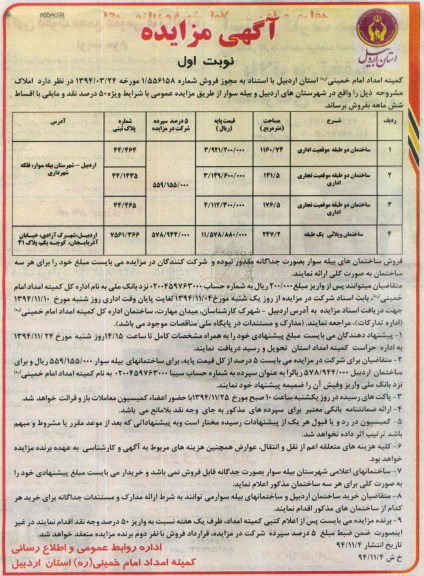 آگهی مزایده
نوبت اول
استان اردبیل
کمیته امداد امام خمینی(ره) استان اردبیل با استناد به مجوز فروش شماره ۱/۵۵۶۱۵۸ مورخه ۱۳۹۴/۰۳/۲۴ در نظر دارد املاک
مشروحه ذیل را واقع در شهرستان های اردبیل و بیله سوار از طریق مزایده عمومی با شرایط ویژه ۵۰ درصد نقد و مابقی با اقساط
شش ماهه بفروش برساند.
ردیف شرح مساحت (مترمربع) قیمت پایه (ریال) ۵ درصد سپرده شرکت در مزایده شماره پلاک ثبتی آدرس
۱ ساختمان دو طبقه موقعیت اداری ۱۱۶۰/۷۴ ۳/۹۲۱/۲۰۰/۰۰۰ ۵۵۹/۱۵۵/۰۰۰ ۴۴/۴۶۴ اردبیل - شهرستان بیله سوار، فلکه شهرداری
۲ ساختمان دو طبقه موقعیت تجاری اداری ۱۴۱/۵ ۳/۱۴۹/۶۰۰/۰۰۰ ۴۴/۱۴۳۵
۳ ساختمان دو طبقه موقعیت تجاری اداری ۱۷۶/۵ ۴/۱۱۲/۳۰۰/۰۰۰ ۴۴/۴۶۵
۴ ساختمان ویلائی یک طبقه ۲۴۷/۲ ۱۱/۵۷۸/۸۸۰/۰۰۰ ۵۷۸/۹۴۴/۰۰۰ ۷۵۶۱/۳۶۶ اردبیل، شهرک آزادی، خیابان آذربایجان، کوچه یکم، پلاک ۴۱
فروش ساختمان های بیله سوار بصورت جداگانه مقدور نبوده و شرکت کنندگان در مزایده می بایست مبلغ خود را برای هر سه
ساختمان به صورت کلی ارائه نمایند.
متقاضیان میتوانند پس از واریز مبلغ ۲۰۰/۰۰۰ ریال به شماره حساب ۰۲۰۰۴۵۹۷۶۳۰۰۰ نزد بانک ملی به نام اداره کل کمیته امداد امام
خمینی(ره)، بابت اسناد شرکت در مزایده از روز یک شنبه مورخ ۱۳۹۴/۱۱/۰۴ لغایت پایان وقت اداری روز شنبه مورخ ۱۳۹۴/۱۱/۱۰
جهت دریافت اسناد مزایده به آدرس اردبیل - شهرک کارشناسان، میدان مهارت، ساختمان اداره کل کمیته امداد امام خمینی(ره)
(اداره تدارکات)، مراجعه نمایند. (مدارک و مستندات در پایگاه ملی مناقصات موجود می باشد).
۱- پیشنهاد دهندگان می بایست مبلغ پیشنهادی خود را به همراه مشخصات کامل تا ساعت ۱۴/۱۵ روز شنبه مورخ ۱۳۹۴/۱۱/۲۴
به اداره حراست کمیته امداد استان تحویل و رسید دریافت نمایند.
۲- متقاضیان برای شرکت در مزایده می بایست ۵ درصد از کل قیمت پایه، برای ساختمانهای بیله سوار ۵۵۹/۱۵۵/۰۰۰ ریال و برای
ساختمان اردبیل ۵۷۸/۹۴۴/۰۰۰ ریال را به عنوان سپرده به شماره حساب سیبا ۰۲۰۰۴۵۹۷۶۳۰۰۰ به نام کمیته امداد امام خمینی(ره)
نزد بانک ملی واریز وفیش آن را ضمیمه پیشنهاد خود نمایند.
۳- پاکت های رسیده در روز یکشنبه ساعت ۱۰ صبح مورخ ۱۳۹۴/۱۱/۲۵ با حضور اعضاء کمیسیون معاملات باز و قرائت خواهد شد.
۴- ارائه ضمانتنامه بانکی معتبر برای سپرده های مذکور به جای وجه نقد بلامانع می باشد.
۵- کمیسیون در رد و یا قبول هر یک از پیشنهادات رسیده مختار است و به پیشنهاداتی که بعد از موعد مقرر یا مشروط و مبهم
باشد ترتیب اثر داده نخواهد شد.
۶- کلیه هزینه های متعلقه اعم از نقل و انتقال، عوارض همچنین هزینه های مربوط به آگهی و کارشناسی به عهده برنده مزایده
خواهد بود.
۷- ساختمانهای اعلامی شهرستان بیله سوار بصورت جداگانه قابل فروش نمی باشد و خریدار می بایست مبلغ پیشنهادی خود را
به صورت کلی برای هر سه ساختمان مذکور اعلام نماید.
۸- متقاضیان خرید ساختمان اردبیل و ساختمانهای بیله سوار می توانند به شرط ارائه مدارک و مستندات جداگانه برای خرید هر
کدام از ساختمان های مذکور اقدام نمایند.
۹- برنده مزایده می بایست پس از اعلام کتبی کمیته امداد، ظرف یک هفته نسبت به واریز ۵۰ درصد وجه نقد اقدام نمایند در غیر
اینصورت ضمن ضبط مبلغ ۵ درصد سپرده شرکت در مزایده، قرارداد فروش با نفر دوم برنده مزایده منعقد خواهد شد.
تاریخ انتشار ۹۴/۱۱/۴
خ ش ۹۴/۱۱/۴
اداره روابط عمومی و اطلاع رسانی
کمیته امداد امام خمینی(ره) استان اردبیل